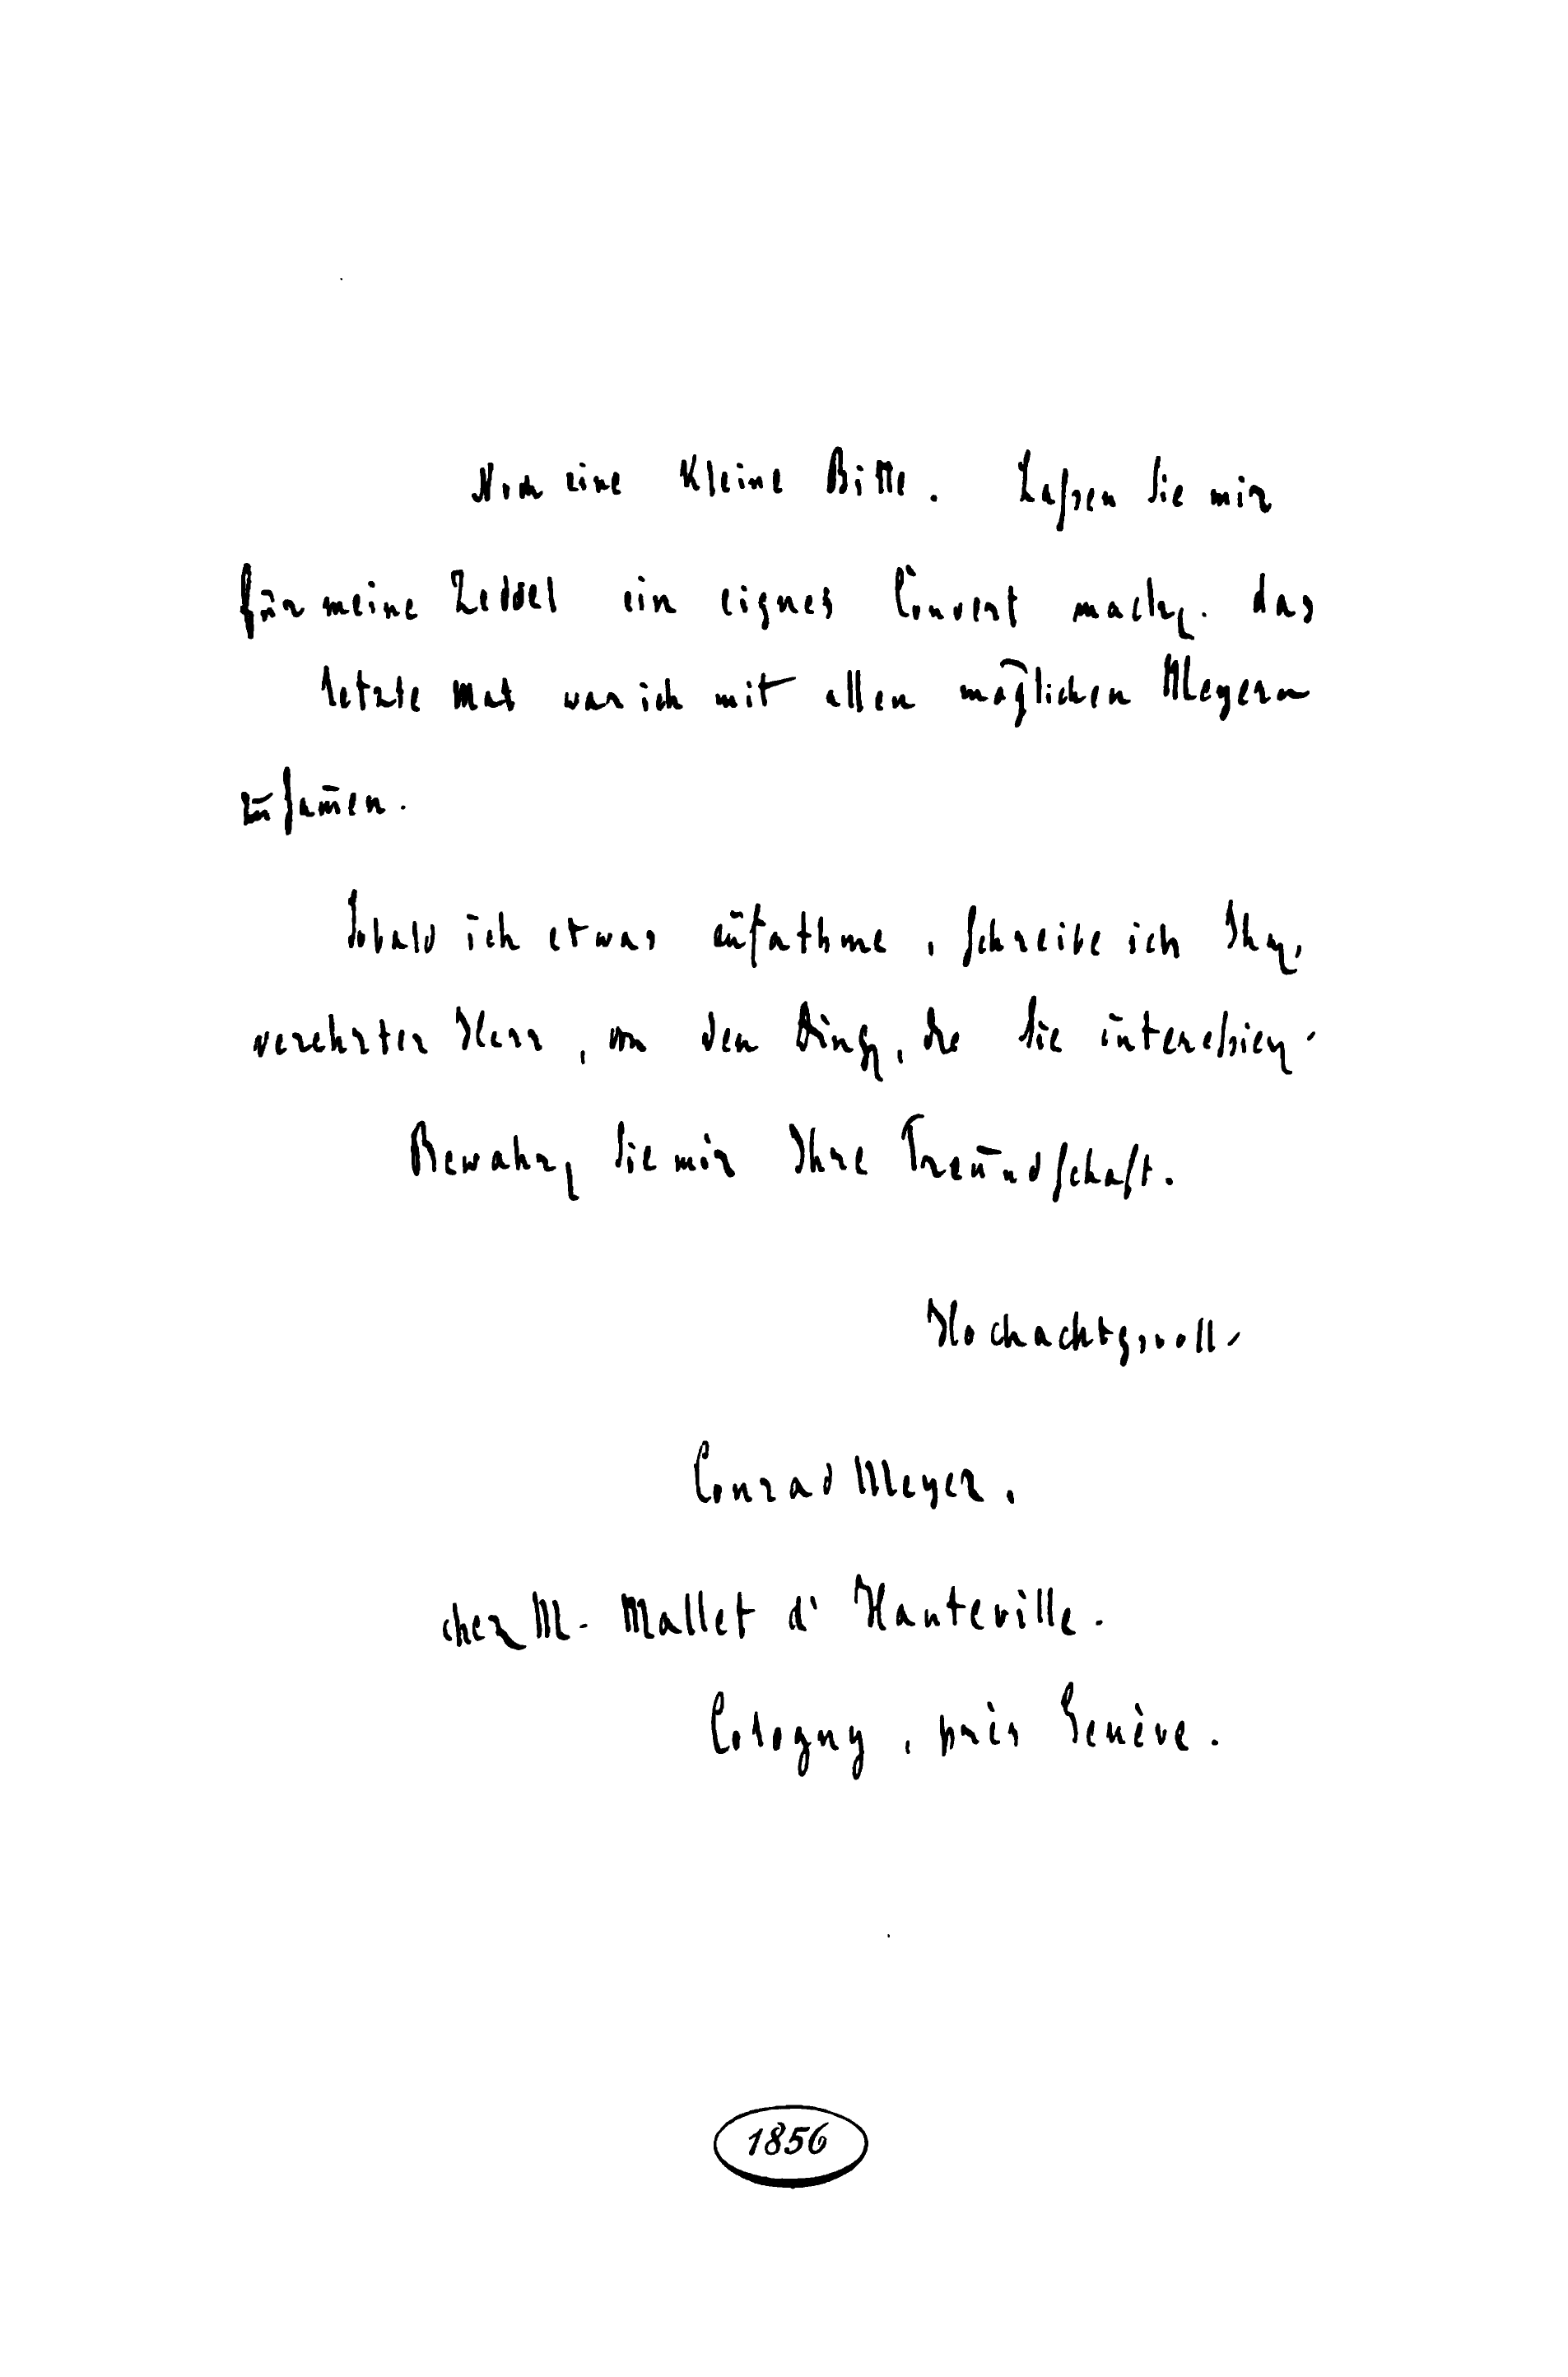 Noch eine Kleine Bitte. Laßen Sie mir
für meine Zeddel ein eignes Couvert machen. das
letzte Mal war ich mit allen möglichen Meyern
zusam̄en.
Sobald ich etwas aufathme, schreibe ich Ihnen,
verehrter Herr, von den Dingen, die Sie intereßieren.
Bewahren Sie mir Ihre Freundschaft.
Hochachtgsvoll.
Conrad Meyer.
chez M. Mallet d'Hauteville.
Cologny, près Genève.
1856